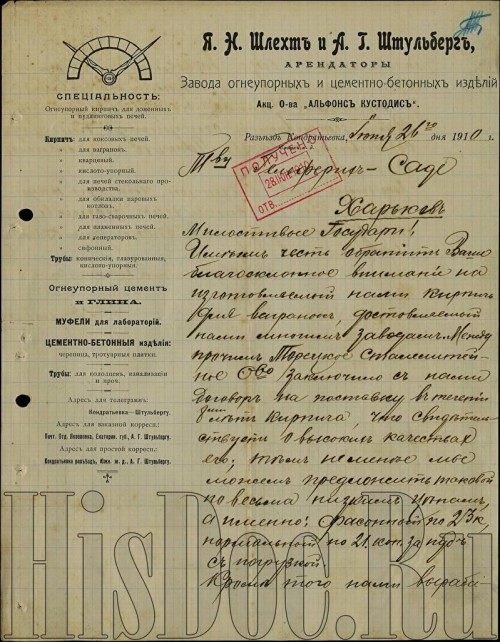 Я. Н. Шлехтъ и А. Г. Штульбергъ,
АРЕНДАТОРЫ
Завода огнеупорныхъ и цементно-бетонныхъ издѣлій
Акц. О-ва „АЛЬФОНСЪ КУСТОДИСЪ".
Разъѣздъ Кондратьевка, Іюня 26го дня 1910 г.
СПЕЦІАЛЬНОСТЬ:
Огнеупорный кирпичъ для доменныхъ и пудлинговыхъ печей.
Кирпичъ: для коксовыхъ печей.
„ для вагранокъ.
„ кварцевый.
„ кислото-упорный.
„ для печей стекольнаго производства.
„ для обкладки паровыхъ котловъ.
„ для газо-сварочныхъ печей.
„ для пламенныхъ печей.
„ для генераторовъ.
„ сифонный.
Трубы: коническія, глазурованныя, кислото-упорныя.
Огнеупорный цементъ
и ГЛИНА.
МУФЕЛИ для лабораторій.
ЦЕМЕНТНО-БЕТОННЫЯ издѣлія:
черепица, тротуарныя плитки.
Трубы: для колодцевъ, канализаціи
и проч.
Адресъ для телеграммъ:
Кондратьевка—Штульбергу.
Адресъ для заказной корресп.:
Почт. Отд. Яковлевка, Екатерин. губ., А. Г. Штульбергу.
Адресъ для простой корресп.:
Кондратьевка разъѣздъ, Южн. ж. д., А. Г. Штульбергу.
ПОЛУЧЕНО
28 ІЮН. 1910
ОТВ.
Тву Гельферихъ-Саде
Харьковъ
Милостивые Государи!
Имѣемъ честь обратить Ваше
благосклонное вниманіе на
изготовляемый нами кирпичъ
для вагранокъ, доставляемый
нами многимъ заводамъ. Между
прочимъ Торецкое Сталелитей-
ное О-во заключило съ нами
договоръ на поставку въ теченіи
лѣтъ кирпича, что свидѣтель-
ствуетъ о высокихъ качествахъ
его; тѣмъ не менѣе мы
можемъ предложить таковой
по весьма низкимъ цѣнамъ,
а именно: фасонный по 23 к
нормальный по 21 коп. за пудъ
съ погрузкой.
Кромѣ того нами выраба-
HisDoc.Ru